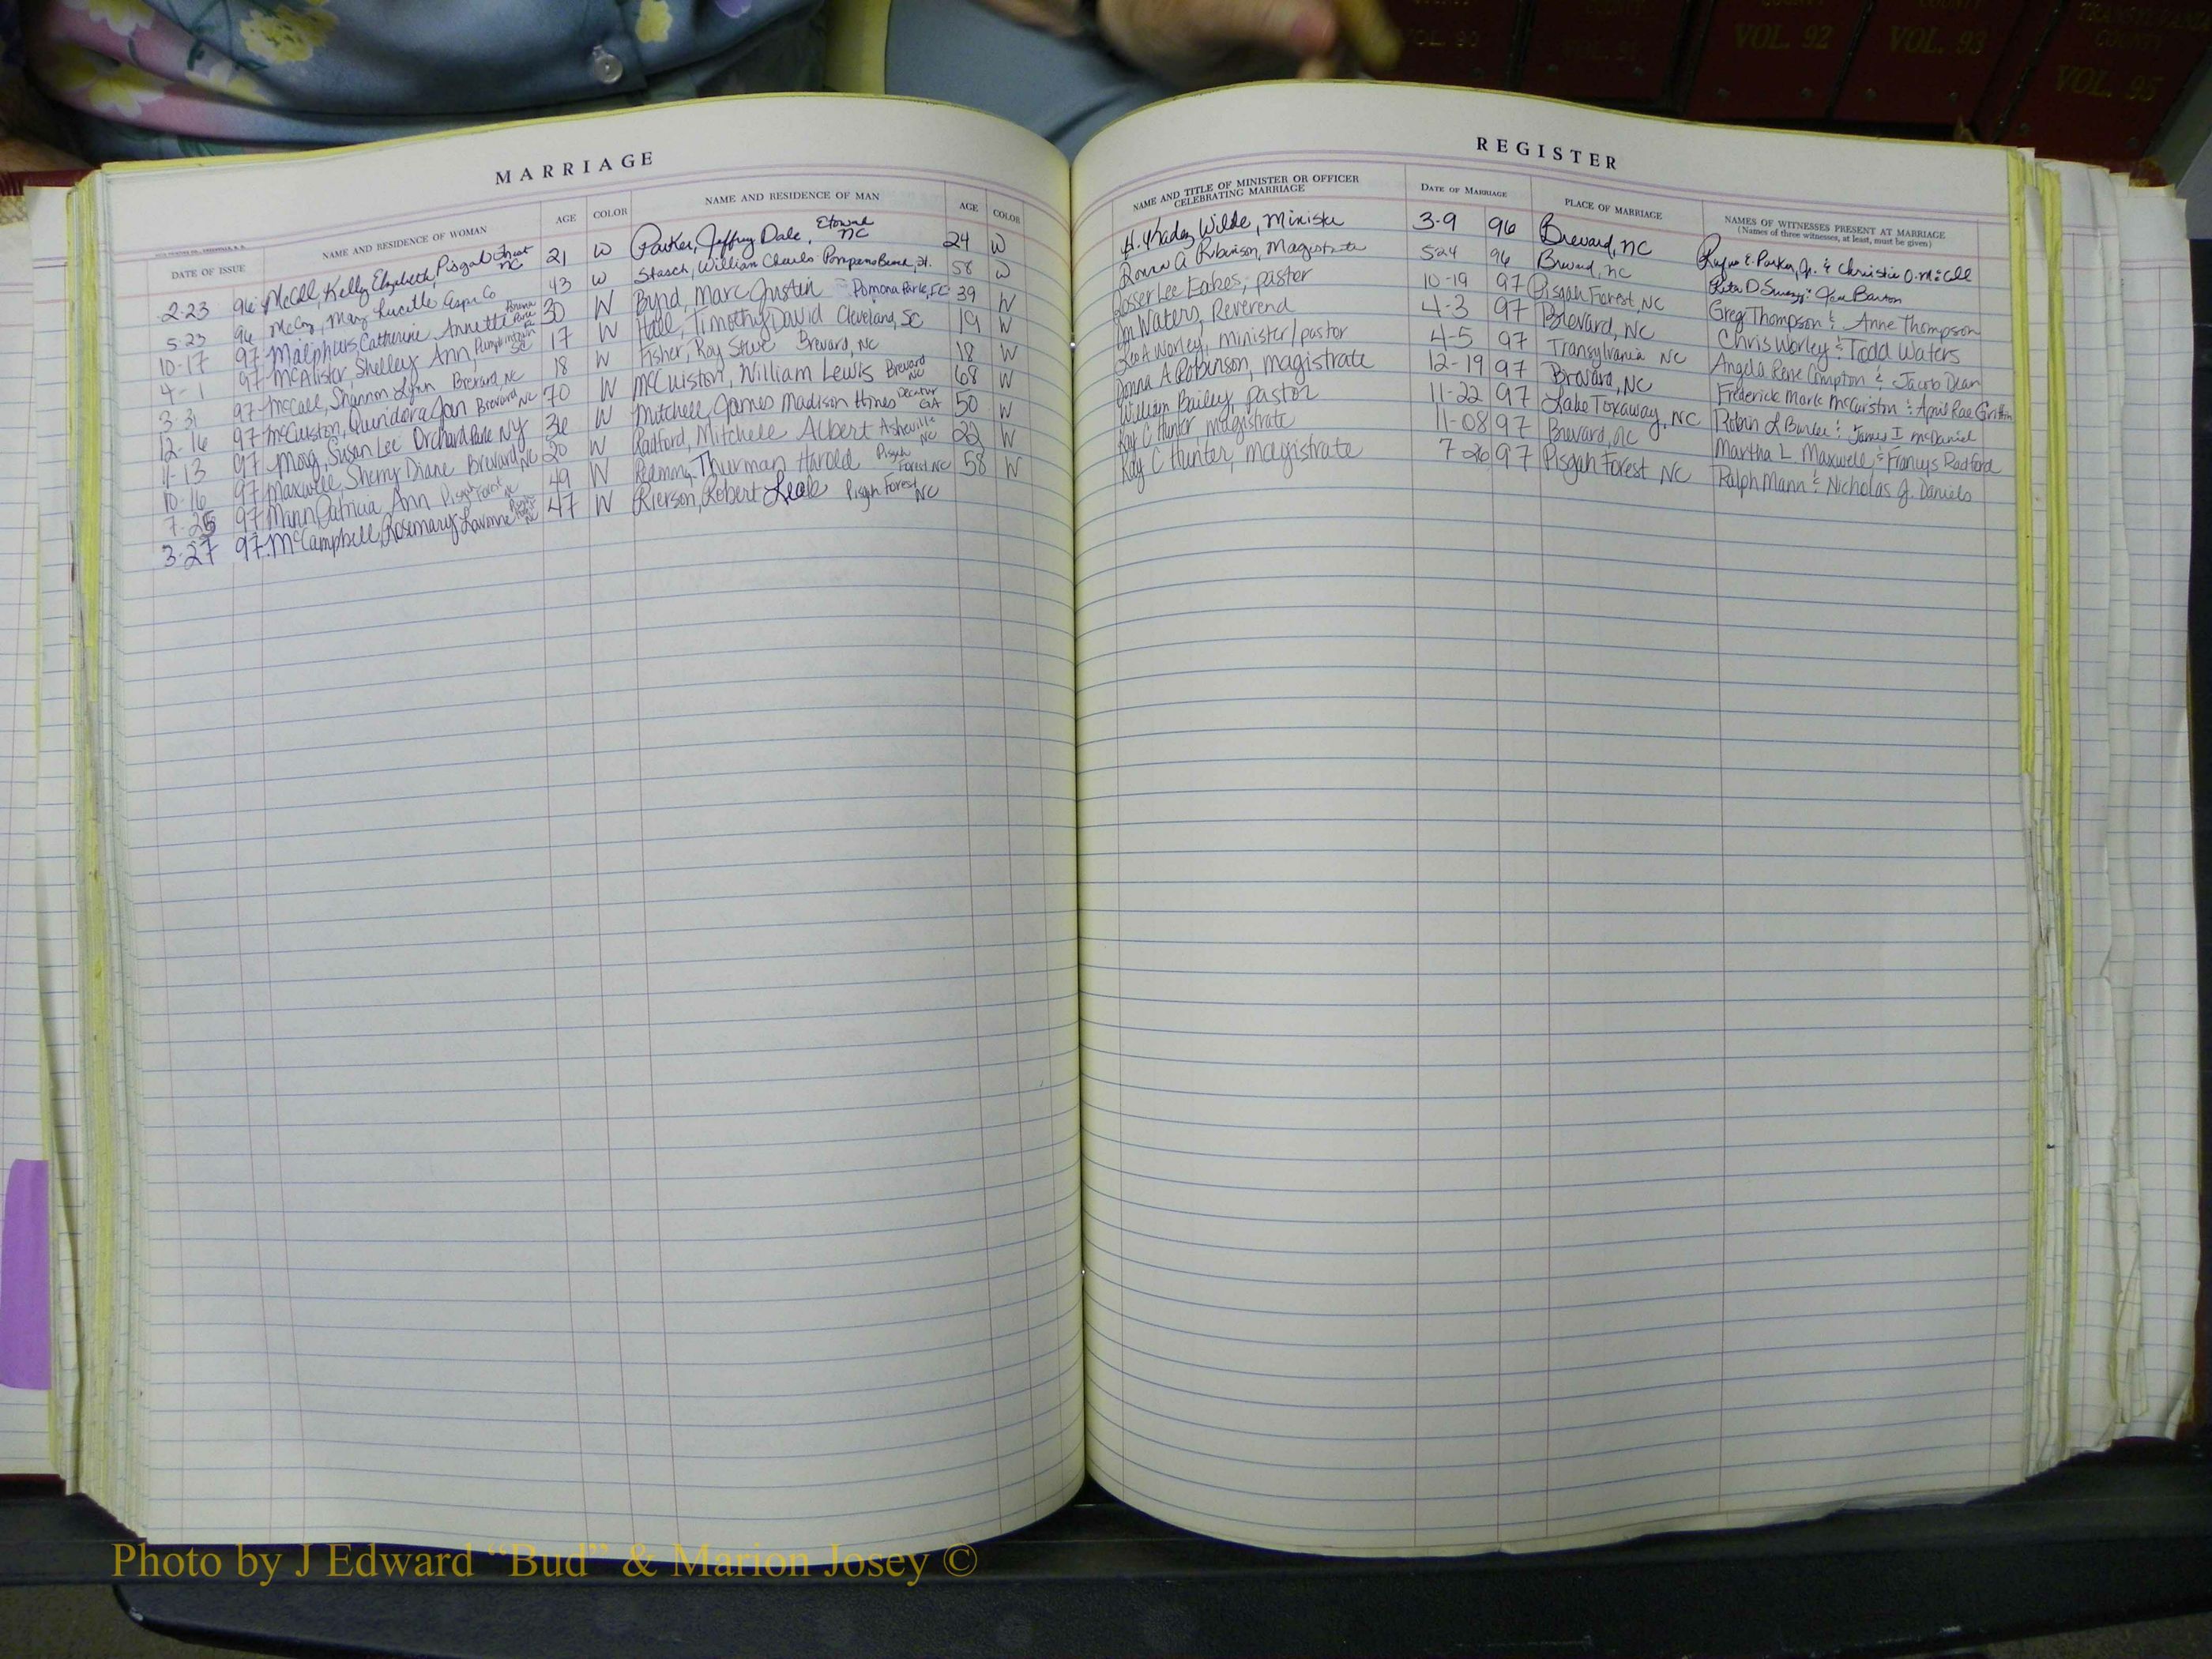 VOL. 92
VOL. 93
TRANSYLVANIA
COUNTY
VOL. 95
MARRIAGE
DATE OF ISSUE NAME AND RESIDENCE OF WOMAN AGE COLOR NAME AND RESIDENCE OF MAN AGE COLOR
2-23 96 McCall, Kelly Elizabeth, Pisgah Forest NC 21 W Parker, Jeffrey Dale, Etowah NC 24 W
5-23 96 McCoy, Mary Lucille 43 W Stasch, William Charles Pompano Beach, Fl. 58 W
10-17 97 Malphurs, Catherine Annette Pomona Park FL 30 W Byrd, Marc Justin Pomona Park, FL 39 W
4-1 97 McAlister, Shelley Ann Pumpkintown SC 17 W Hall, Timothy David Cleveland, SC 19 W
3-31 97 McCall, Shannon Lynn Brevard, NC 18 W Fisher, Roy Steve Brevard, NC 18 W
12-16 97 McCuiston, Quindora Jan Brevard NC 70 W McCuiston, William Lewis Brevard NC 68 W
11-13 97 Moog, Susan Lee Orchard Park NY 36 W Mitchell, James Madison Hines Decatur GA 50 W
10-16 97 Maxwell, Sherry Diane Brevard NC 20 W Radford, Mitchell Albert Asheville NC 22 W
7-25 97 Mann, Patricia Ann Pisgah Forest NC 49 W Redmong, Thurman Harold Pisgah Forest NC 58 W
3-27 97 McCampbell, Rosemary Lavonne NC 47 W Rierson, Robert Leale Pisgah Forest NC
REGISTER
NAME AND TITLE OF MINISTER OR OFFICER CELEBRATING MARRIAGE DATE OF MARRIAGE PLACE OF MARRIAGE NAMES OF WITNESSES PRESENT AT MARRIAGE
(Names of three witnesses, at least, must be given)
H. Thadey Wilde, Minister 3-9 96 Brevard, NC Rufus E. Parker, Jr. & Christie O. McCall
Donna A Robinson, Magistrate 5-24 96 Brevard, NC Rita D & Jane Barton
Roser Lee Eakes, pastor 10-19 97 Pisgah Forest, NC Greg Thompson & Anne Thompson
Jim Waters, Reverend 4-3 97 Brevard, NC Chris Worley & Todd Waters
Leo A Worley, minister/pastor 4-5 97 Transylvania NC Angela Rene Compton & Jacob Dean
Donna A Robinson, magistrate 12-19 97 Brevard, NC Frederick Mark McCuiston & April Rae Griffin
William Bailey, pastor 11-22 97 Lake Toxaway, NC Robin L Burlee & James I McDaniel
Kay C Hunter, magistrate 11-08 97 Brevard, NC Martha L. Maxwell & Francys Radford
Kay C Hunter, magistrate 7-26 97 Pisgah Forest NC Ralph Mann & Nicholas J. Daniels
Photo by J Edward “Bud” & Marion Josey ©